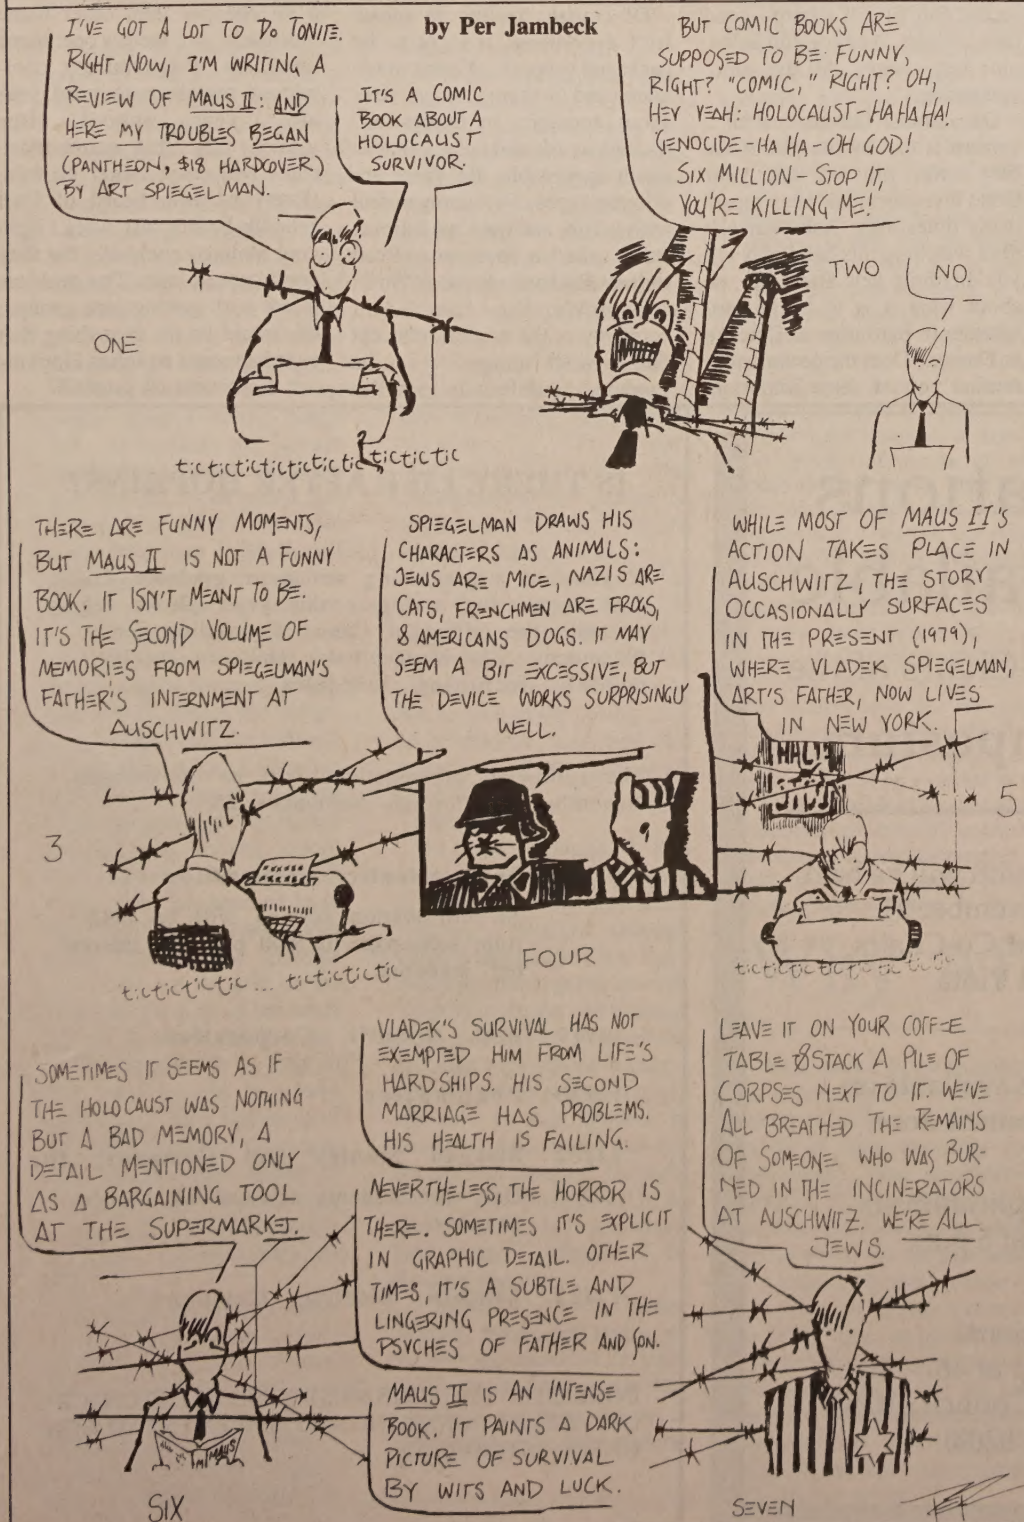 by Per Jambeck
I'VE GOT A LOT TO DO TONITE.
RIGHT NOW, I'M WRITING A
REVIEW OF MAUS II: AND
HERE MY TROUBLES BEGAN
(PANTHEON, $18 HARDCOVER)
BY ART SPIEGELMAN.
IT'S A COMIC
BOOK ABOUT A
HOLOCAUST
SURVIVOR.
ONE
tictictictictictictictictictic
BUT COMIC BOOKS ARE
SUPPOSED TO BE FUNNY,
RIGHT? "COMIC," RIGHT? OH,
HEY YEAH: HOLOCAUST-HA HA HA!
GENOCIDE-HA HA-OH GOD!
SIX MILLION-STOP IT,
YOU'RE KILLING ME!
TWO
NO.
THERE ARE FUNNY MOMENTS,
BUT MAUS II IS NOT A FUNNY
BOOK. IT ISN'T MEANT TO BE.
IT'S THE SECOND VOLUME OF
MEMORIES FROM SPIEGELMAN'S
FATHER'S INTERNMENT AT
AUSCHWITZ.
3
tictictictictic ... tictictictictic
SPIEGELMAN DRAWS HIS
CHARACTERS AS ANIMALS:
JEWS ARE MICE, NAZIS ARE
CATS, FRENCHMEN ARE FROGS,
& AMERICANS DOGS. IT MAY
SEEM A BIT EXCESSIVE, BUT
THE DEVICE WORKS SURPRISINGLY
WELL.
FOUR
WHILE MOST OF MAUS II'S
ACTION TAKES PLACE IN
AUSCHWITZ, THE STORY
OCCASIONALLY SURFACES
IN THE PRESENT (1979),
WHERE VLADEK SPIEGELMAN,
ART'S FATHER, NOW LIVES
IN NEW YORK.
HALT
5
tictictictictic tic tictic
SOMETIMES IT SEEMS AS IF
THE HOLOCAUST WAS NOTHING
BUT A BAD MEMORY, A
DETAIL MENTIONED ONLY
AS A BARGAINING TOOL
AT THE SUPERMARKET.
MAUS
SIX
VLADEK'S SURVIVAL HAS NOT
EXEMPTED HIM FROM LIFE'S
HARDSHIPS. HIS SECOND
MARRIAGE HAS PROBLEMS.
HIS HEALTH IS FAILING.
NEVERTHELESS, THE HORROR IS
THERE. SOMETIMES IT'S EXPLICIT
IN GRAPHIC DETAIL. OTHER
TIMES, IT'S A SUBTLE AND
LINGERING PRESENCE IN THE
PSYCHES OF FATHER AND SON.
MAUS II IS AN INTENSE
BOOK. IT PAINTS A DARK
PICTURE OF SURVIVAL
BY WITS AND LUCK.
LEAVE IT ON YOUR COFFEE
TABLE & STACK A PILE OF
CORPSES NEXT TO IT. WE'VE
ALL BREATHED THE REMAINS
OF SOMEONE WHO WAS BUR-
NED IN THE INCINERATORS
AT AUSCHWITZ. WE'RE ALL
JEWS.
SEVEN